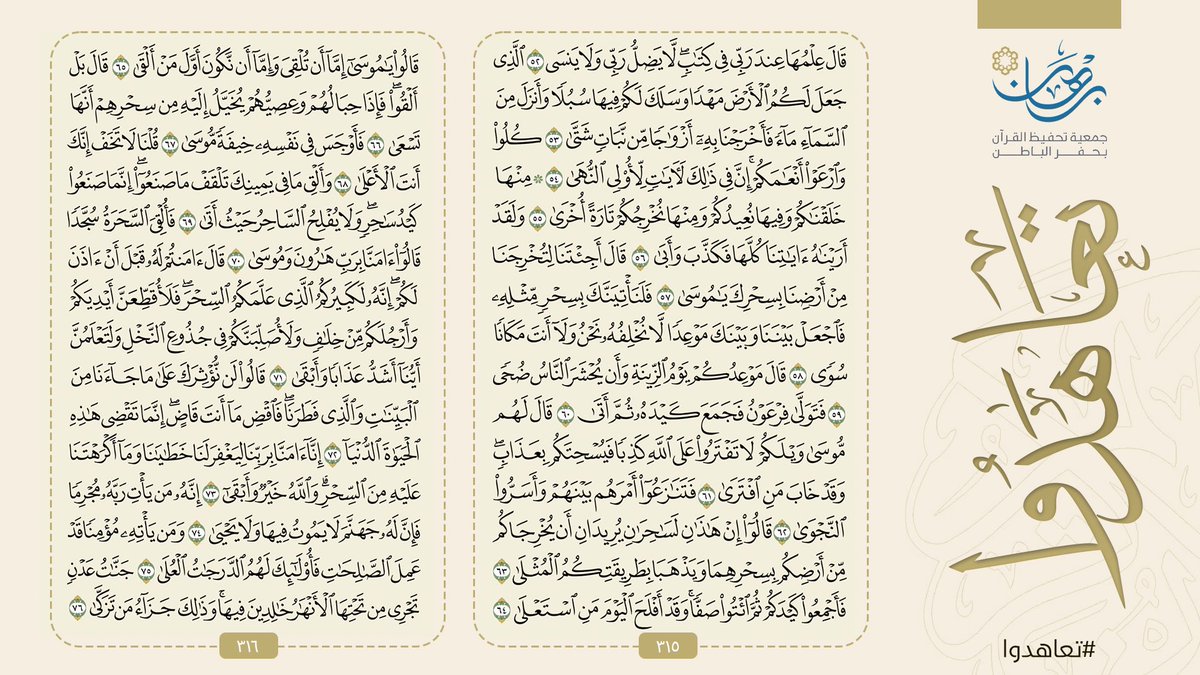 برهان
جمعية تحفيظ القرآن
بحفر الباطن
تعاهدوا
#تعاهدوا
قَالَ عِلْمُهَا عِندَ رَبِّي فِي كِتَٰبٖۖ لَّا يَضِلُّ رَبِّي وَلَا يَنسَى ٥٢ ٱلَّذِي
جَعَلَ لَكُمُ ٱلۡأَرۡضَ مَهۡدٗا وَسَلَكَ لَكُمۡ فِيهَا سُبُلٗا وَأَنزَلَ مِنَ
ٱلسَّمَآءِ مَآءٗ فَأَخۡرَجۡنَا بِهِۦٓ أَزۡوَٰجٗا مِّن نَّبَاتٖ شَتَّىٰ ٥٣ كُلُواْ
وَٱرۡعَوۡاْ أَنۡعَٰمَكُمۡۚ إِنَّ فِي ذَٰلِكَ لَأٓيَٰتٖ لِّأُوْلِي ٱلنُّهَىٰ ٥٤ ۞ مِنۡهَا
خَلَقۡنَٰكُمۡ وَفِيهَا نُعِيدُكُمۡ وَمِنۡهَا نُخۡرِجُكُمۡ تَارَةً أُخۡرَىٰ ٥٥ وَلَقَدۡ
أَرَيۡنَٰهُ ءَايَٰتِنَا كُلَّهَا فَكَذَّبَ وَأَبَىٰ ٥٦ قَالَ أَجِئۡتَنَا لِتُخۡرِجَنَا
مِنۡ أَرۡضِنَا بِسِحۡرِكَ يَٰمُوسَىٰ ٥٧ فَلَنَأۡتِيَنَّكَ بِسِحۡرٖ مِّثۡلِهِۦ
فَٱجۡعَلۡ بَيۡنَنَا وَبَيۡنَكَ مَوۡعِدٗا لَّا نُخۡلِفُهُۥ نَحۡنُ وَلَآ أَنتَ مَكَانٗا
سُوٗى ٥٨ قَالَ مَوۡعِدُكُمۡ يَوۡمُ ٱلزِّينَةِ وَأَن يُحۡشَرَ ٱلنَّاسُ ضُحٗى
٥٩ فَتَوَلَّىٰ فِرۡعَوۡنُ فَجَمَعَ كَيۡدَهُۥ ثُمَّ أَتَىٰ ٦٠ قَالَ لَهُم
مُّوسَىٰ وَيۡلَكُمۡ لَا تَفۡتَرُواْ عَلَى ٱللَّهِ كَذِبٗا فَيُسۡحِتَكُم بِعَذَابٖۖ
وَقَدۡ خَابَ مَنِ ٱفۡتَرَىٰ ٦١ فَتَنَٰزَعُوٓاْ أَمۡرَهُم بَيۡنَهُمۡ وَأَسَرُّواْ
ٱلنَّجۡوَىٰ ٦٢ قَالُوٓاْ إِنۡ هَٰذَٰنِ لَسَٰحِرَٰنِ يُرِيدَانِ أَن يُخۡرِجَاكُم
مِّنۡ أَرۡضِكُم بِسِحۡرِهِمَا وَيَذۡهَبَا بِطَرِيقَتِكُمُ ٱلۡمُثۡلَىٰ ٦٣
فَأَجۡمِعُواْ كَيۡدَكُمۡ ثُمَّ ٱئۡتُواْ صَفّٗاۚ وَقَدۡ أَفۡلَحَ ٱلۡيَوۡمَ مَنِ ٱسۡتَعۡلَىٰ ٦٤
٣١٥
قَالُواْ يَٰمُوسَىٰٓ إِمَّآ أَن تُلۡقِيَ وَإِمَّآ أَن نَّكُونَ أَوَّلَ مَنۡ أَلۡقَىٰ ٦٥ قَالَ بَلۡ
أَلۡقُواْۖ فَإِذَا حِبَالُهُمۡ وَعِصِيُّهُمۡ يُخَيَّلُ إِلَيۡهِ مِن سِحۡرِهِمۡ أَنَّهَا
تَسۡعَىٰ ٦٦ فَأَوۡجَسَ فِي نَفۡسِهِۦ خِيفَةٗ مُّوسَىٰ ٦٧ قُلۡنَا لَا تَخَفۡ إِنَّكَ
أَنتَ ٱلۡأَعۡلَىٰ ٦٨ وَأَلۡقِ مَا فِي يَمِينِكَ تَلۡقَفۡ مَا صَنَعُوٓاْۖ إِنَّمَا صَنَعُواْ
كَيۡدُ سَٰحِرٖۖ وَلَا يُفۡلِحُ ٱلسَّاحِرُ حَيۡثُ أَتَىٰ ٦٩ فَأُلۡقِيَ ٱلسَّحَرَةُ سُجَّدٗا
قَالُوٓاْ ءَامَنَّا بِرَبِّ هَٰرُونَ وَمُوسَىٰ ٧٠ قَالَ ءَامَنتُمۡ لَهُۥ قَبۡلَ أَنۡ ءَاذَنَ
لَكُمۡۖ إِنَّهُۥ لَكَبِيرُكُمُ ٱلَّذِي عَلَّمَكُمُ ٱلسِّحۡرَۖ فَلَأُقَطِّعَنَّ أَيۡدِيَكُمۡ
وَأَرۡجُلَكُم مِّنۡ خِلَٰفٖ وَلَأُصَلِّبَنَّكُمۡ فِي جُذُوعِ ٱلنَّخۡلِ وَلَتَعۡلَمُنَّ
أَيُّنَآ أَشَدُّ عَذَابٗا وَأَبۡقَىٰ ٧١ قَالُواْ لَن نُّؤۡثِرَكَ عَلَىٰ مَا جَآءَنَا مِنَ
ٱلۡبَيِّنَٰتِ وَٱلَّذِي فَطَرَنَاۖ فَٱقۡضِ مَآ أَنتَ قَاضٍۖ إِنَّمَا تَقۡضِي هَٰذِهِ
ٱلۡحَيَوٰةَ ٱلدُّنۡيَآ ٧٢ إِنَّآ ءَامَنَّا بِرَبِّنَا لِيَغۡفِرَ لَنَا خَطَٰيَٰنَا وَمَآ أَكۡرَهۡتَنَا
عَلَيۡهِ مِنَ ٱلسِّحۡرِۗ وَٱللَّهُ خَيۡرٞ وَأَبۡقَىٰٓ ٧٣ إِنَّهُۥ مَن يَأۡتِ رَبَّهُۥ مُجۡرِمٗا
فَإِنَّ لَهُۥ جَهَنَّمَ لَا يَمُوتُ فِيهَا وَلَا يَحۡيَىٰ ٧٤ وَمَن يَأۡتِهِۦ مُؤۡمِنٗا قَدۡ
عَمِلَ ٱلصَّٰلِحَٰتِ فَأُوْلَٰٓئِكَ لَهُمُ ٱلدَّرَجَٰتُ ٱلۡعُلَىٰ ٧٥ جَنَّٰتُ عَدۡنٖ
تَجۡرِي مِن تَحۡتِهَا ٱلۡأَنۡهَٰرُ خَٰلِدِينَ فِيهَاۚ وَذَٰلِكَ جَزَآءُ مَن تَزَكَّىٰ ٧٦
٣١٦